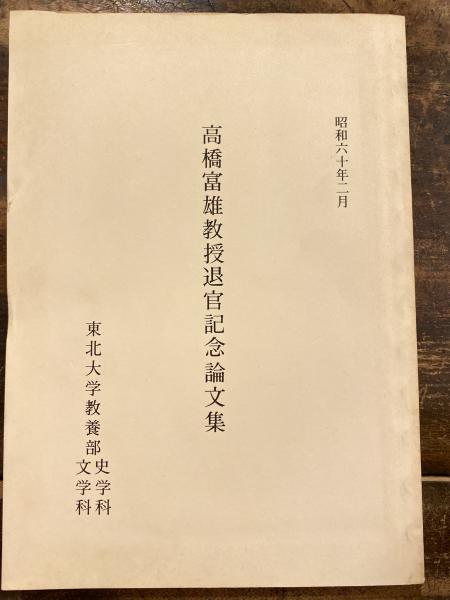 昭和六十年二月
高橋富雄教授退官記念論文集
東北大学教養部
史学科
文学科